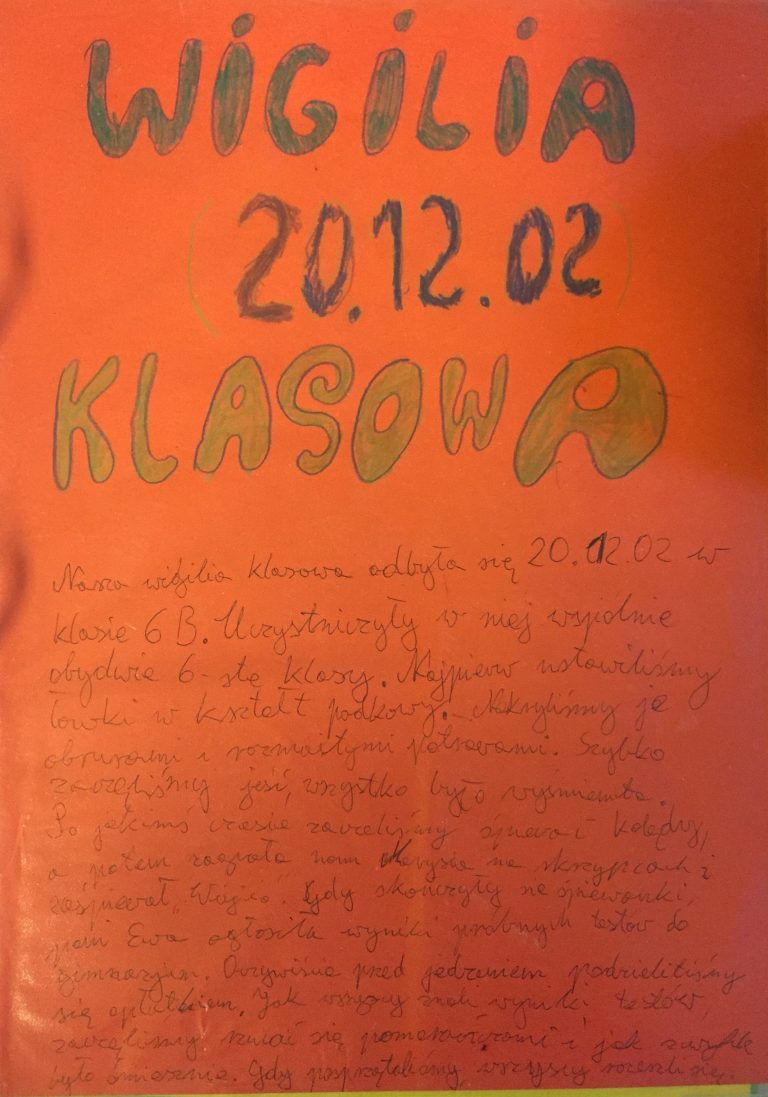 WIGILIA
(20.12.02)
KLASOWA
Nasza wigilia klasowa odbyła się 20.12.02 w
klasie 6 B. Uczystniczyły w niej wspólnie
obydwie 6-stę klasy. Najpierw ustawiliśmy
ławki w kształt podkowy. Nakryliśmy je
obrusami i rozmaitymi potrawami. Szybko
zaczęliśmy jeść, wszystko było wyśmienite.
Po jakimś czasie zaczeliśmy śpiewać kolędy,
a potem zagrała nam Marysia na skrzypcach i
zaśpiewał "Wójcio". Gdy skończyły się śpiewanki,
pani Ewa ogłosiła wyniki próbnych testów do
gimnazjum. Oczywiście przed jedzeniem podzieliliśmy
się opłatkiem. Jak wszyscy znali wyniki testów,
zaczęliśmy rzucać się pomarańczami i jak zwykle
było śmiesznie. Gdy posprzątaliśmy wszyscy rozeszli się.